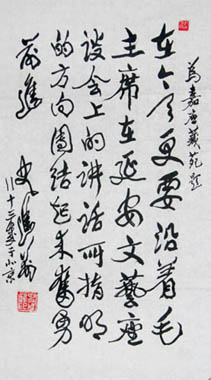 為嘉唐藝苑題
在今天更要沿着毛
主席在延安文藝座
談會上的讲话所指明
的方向團结起来奮勇
前進
史進前
八十三叟于北京